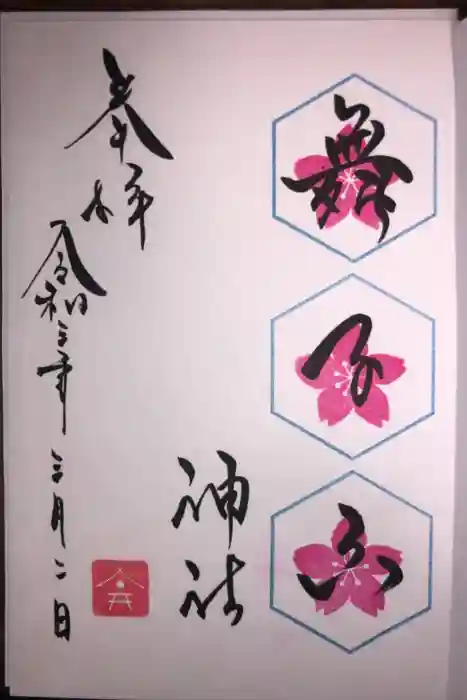 舞子六
神社
奉拝
令和三年三月二日